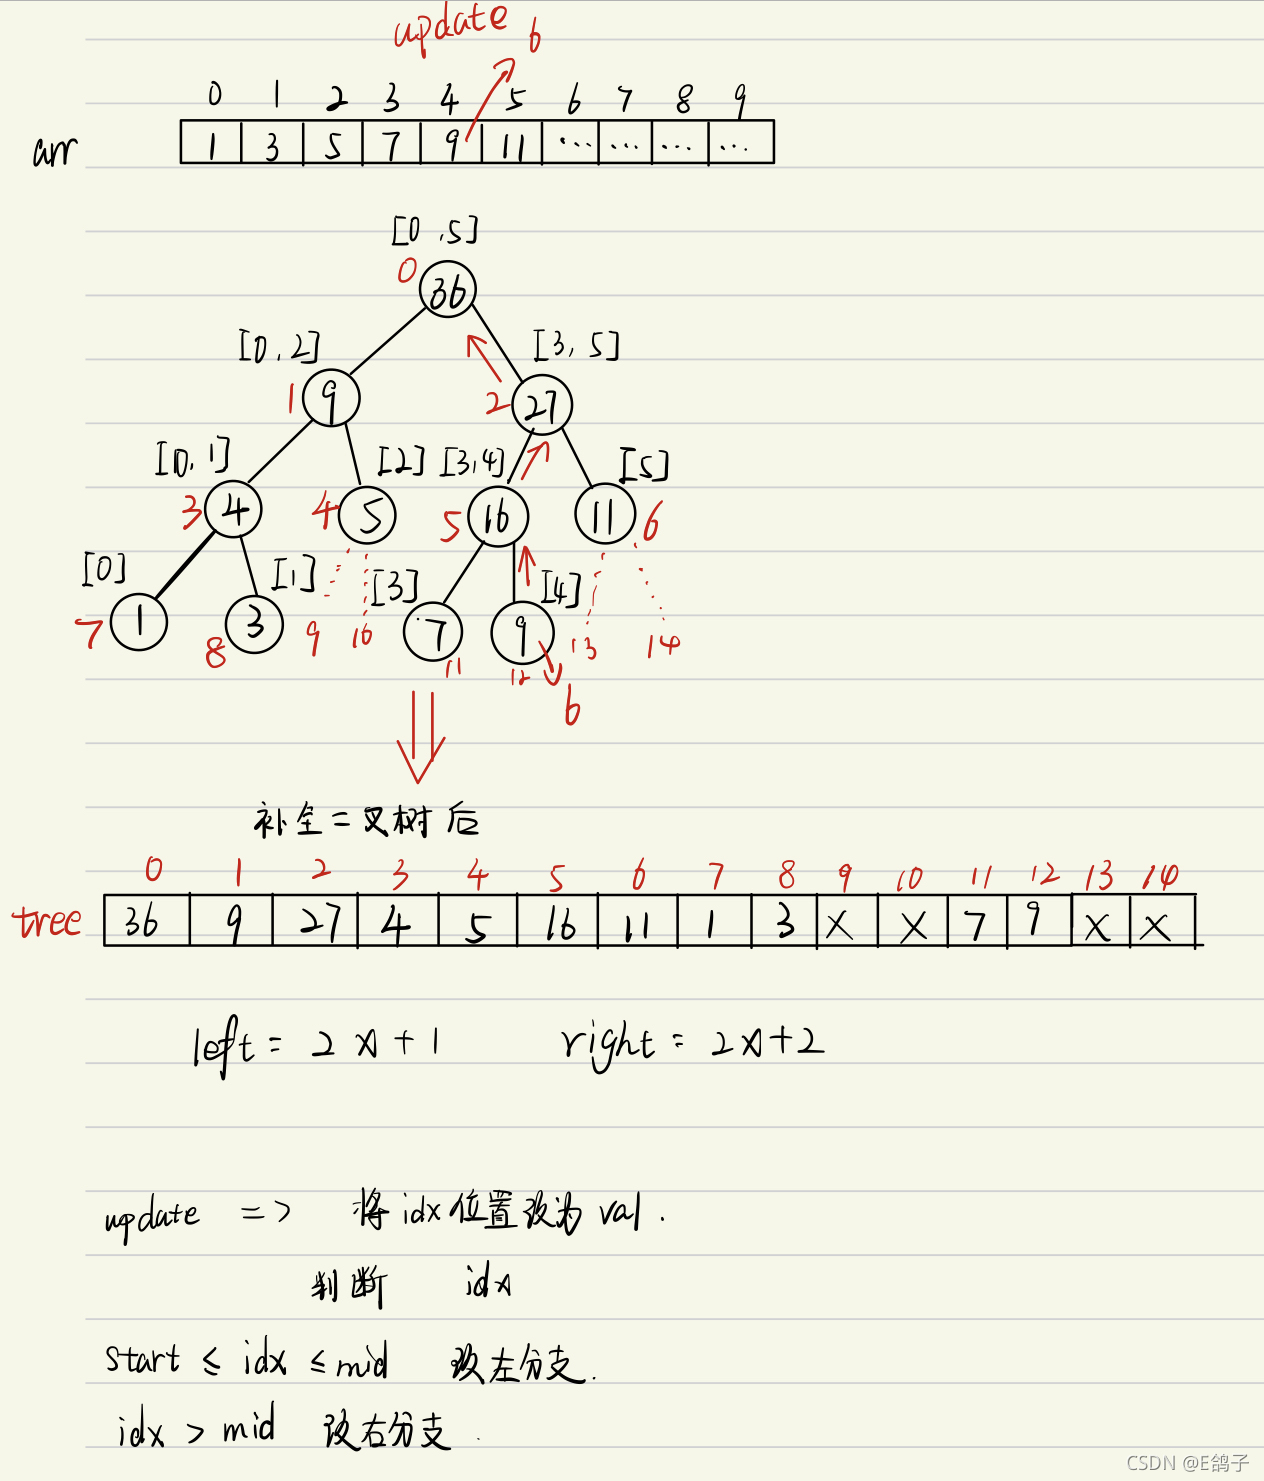 update 6
0 1 2 3 4 5 6 7 8 9
arr 1 3 5 7 9 11 ... ... ... ...
[0,5]
0 36
[0,2] [3,5]
1 9 2 27
[0,1] [2] [3,4] [5]
3 4 4 5 5 16 11 6
[0] [1] [3] [4]
7 1 8 3 9 10 7 11 9 12 13 14
6
补全二叉树后
0 1 2 3 4 5 6 7 8 9 10 11 12 13 14
tree 36 9 27 4 5 16 11 1 3 x x 7 9 x x
left = 2x+1 right = 2x+2
update => 将idx位置改为val.
判断 idx
start ≤ idx ≤ mid 改左分支.
idx > mid 改右分支.
CSDN @E鸽子